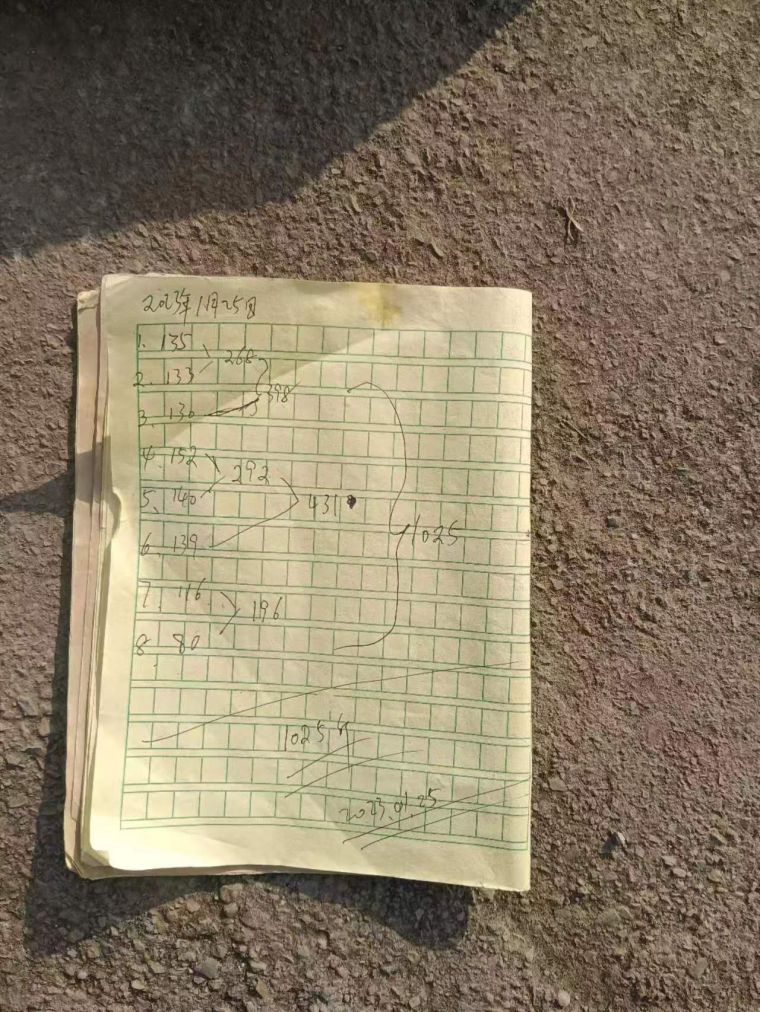 2023年1月25日
1. 135
268
2. 133
398
3. 130
4. 152
292
5. 140
431
6. 139
1025
7. 116
196
8. 80
1025
2023.01.25